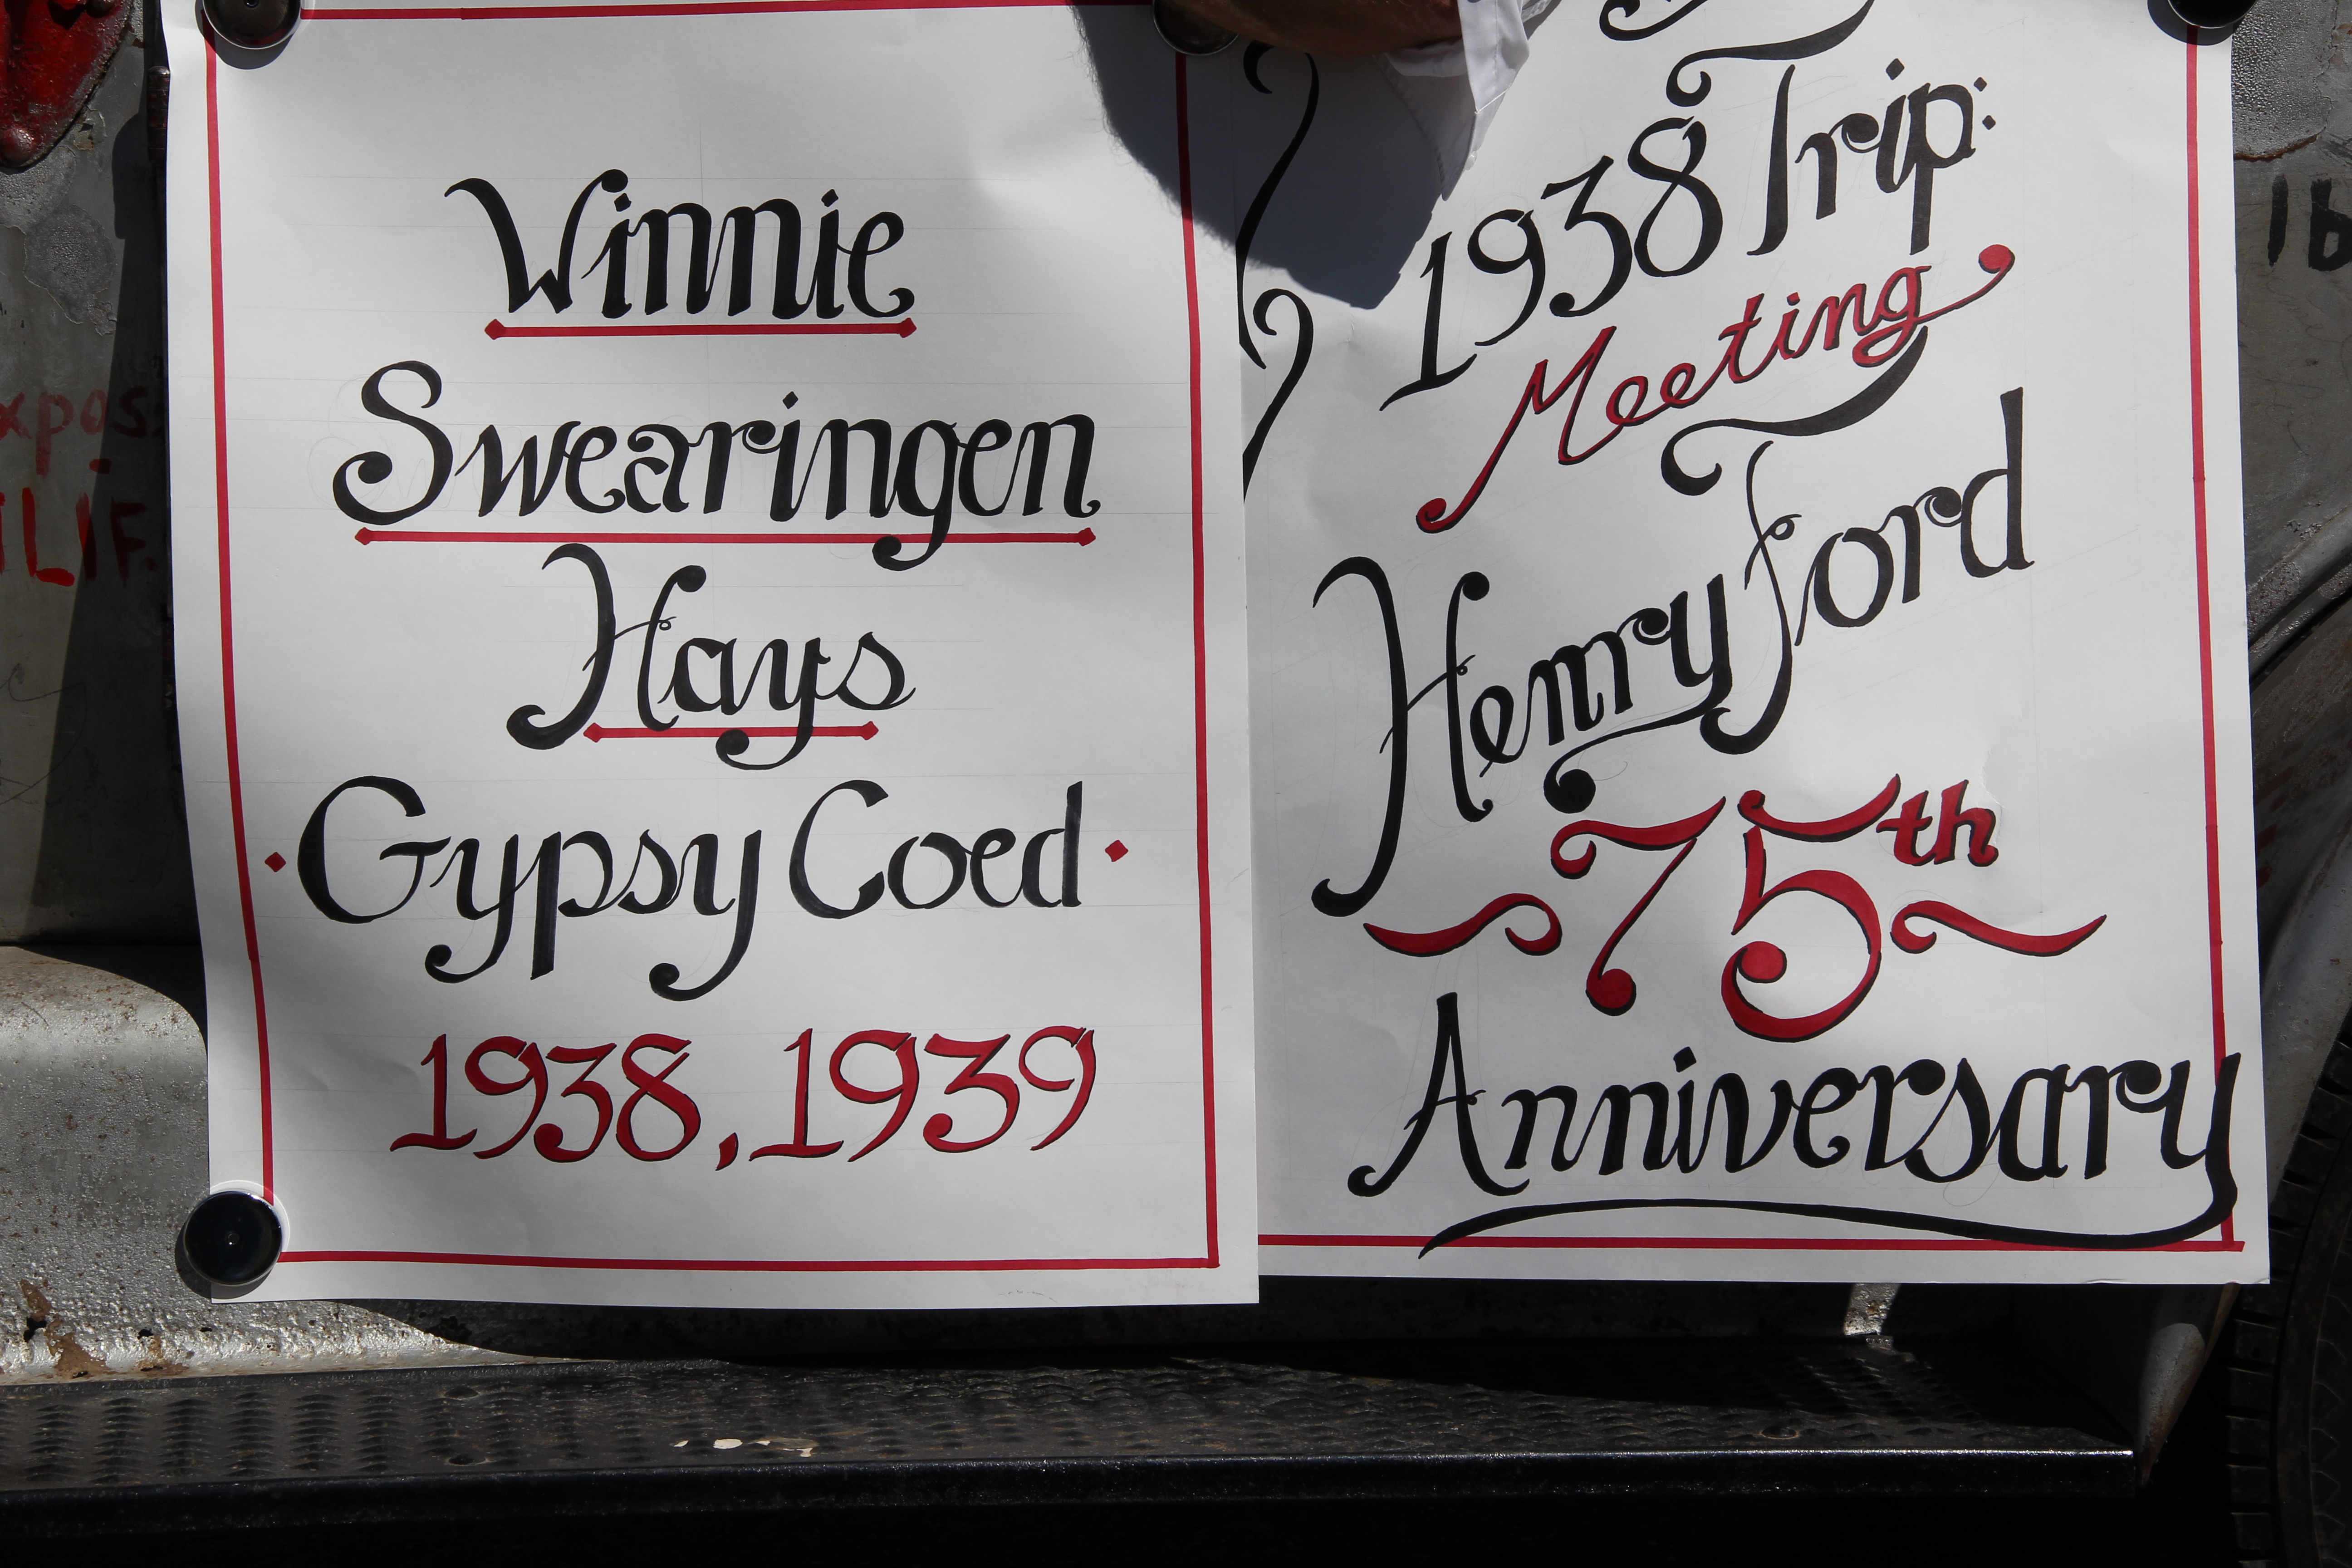 Winnie
Swearingen
Hays
Gypsy Coed
1938, 1939
1938 Trip:
Meeting
Henry Ford
75th
Anniversary
ILIF.